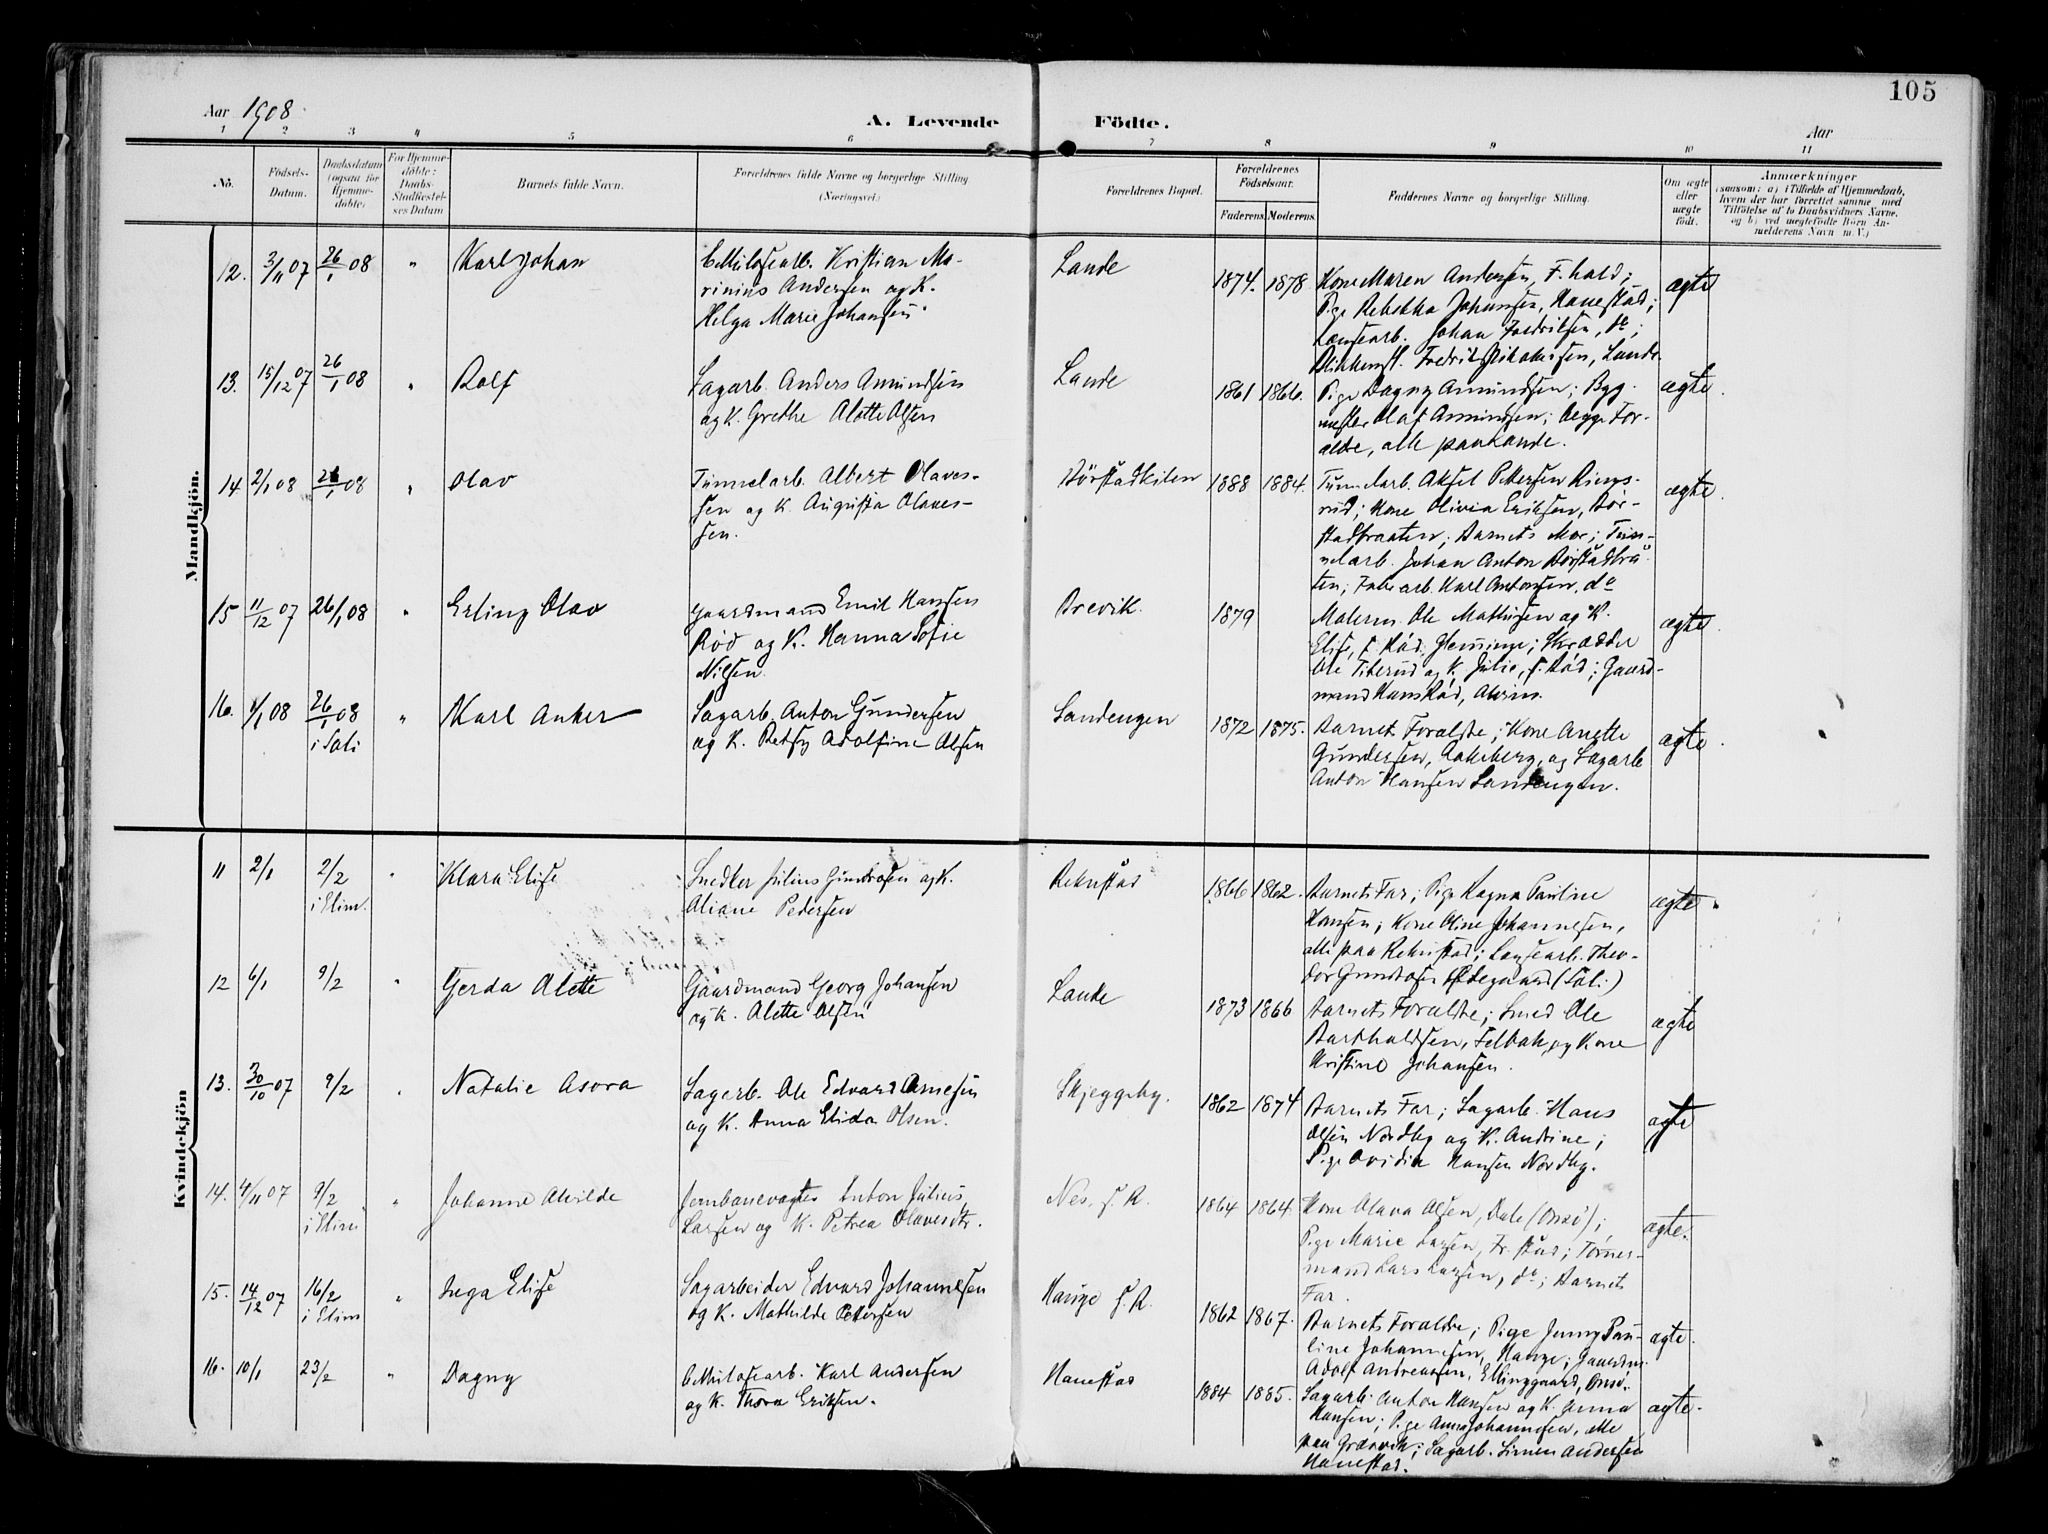 105
Aar 1908
A. Levende Födte.
Aar
1 2 3 4 5 6 7 8 9 10 11
No.
Födsels-
Datum.
Daabsdatum
(ogsaa for
Hjemme-
döbte)
For Hjemme-
döbte:
Daabs-
Stadfæstel-
ses Datum
Barnets fulde Navn.
Forældrenes fulde Navne og borgerlige Stilling
(Næringsvei.)
Forældrenes Bopæl.
Forældrenes
Födselsaar.
Faderens. Moderens.
Faddernes Navne og borgerlige Stilling.
Om ægte
eller
uægte
födt.
Anmærkninger
(saasom: a) i Tilfælde af Hjemmedaab,
hvem der har forrettet samme, med
Tilföielse af to Daabsvidners Navne,
og b) ved uægtefödte Börn An-
melderens Navn m. V.)
Mandkjön.
12. 3/11 07 26/1 08 " Karl Johan
Kristian Ma-
rinius Andersen og K.
Helga Marie Johansen.
Lande 1874. 1878
Kone Maren Andersen, F.hald;
Pige Rebekka Johansen, Hanestad;
Lænsearb. Johan Fredriksen, do;
Fredrik Lande
ægte
13. 15/12 07 26/1 08 " Rolf
Sagarb. Anders Amundsen
og K. Grethe Alette Olsen
Lande 1861 1866.
Pige Dagny Amundsen; Byg-
mester Olaf Amundsen; Begge For-
ældre, alle paa Lande.
ægte.
14 2/1 08 26/1 08 " Olav
Tunnelarb. Albert Olaves-
sen og K. Augusta Olaves-
sen.
Börstadkilen 1888 1884.
Tunnelarb. Aksel Pettersen Rings-
rud; Kone Olivia Eriksen, Bör-
stadbraaten; Barnets Mor; Tun-
nelarb. Johan Anton Börstadbrå-
ten; Fabr.arb. Karl Antonsen, do
ægte.
15 11/12 07 26/1 08 " Erling Olav
Gaardmand Emil Hansen
Röd og K. Hanna Sofie
Nilsen.
Brevik. 1879
Malerm. Ole Mathisen og K.
Elise, f. Röd, Glemminge; Skrædder
Ole Tiberud og K. Julie, f. Röd; Gaard-
mand Hans Röd,
ægte.
16. 1/1 08 26/1 08 " Karl Anker
i Soli
Sagarb. Anton Gundersen
og K. Betsy Adolfine Olsen
Sandengen 1872 1875.
Barnet Forældre; Kone Anette
Gundersen, Lokeberg, og Sagarb.
Anton Hansen Sandengen.
ægte.
Kvindekjön
11 2/1 2/2 " Klara Elise
i Elim.
Snedker Julius Gundersen og K.
Oliane Pedersen
Rekustad 1866 1862.
Barnets Far; Pige Ragna Pauline
Hansen; Kone Oline Johannesen,
alle paa Rekustad; Lænsearb. Theo-
dor Gundersen Ödegaard (Soli)
ægte.
12 6/1 9/2 " Gerda Alette
Gaardmand Georg Johansen
og K. Alette Olsen
Lande 1873 1866
Barnets Forældre; Smed Ole
Bartholdsen, Felbak, og Kone
Kristine Johansen.
ægte
13. 30/10 07 9/2 " Natalie Asora
Sagarb. Ole Edvard Arnesen
og K. Anna Elida Olsen.
Skjeggeby. 1862 1874
Barnets Far; Sagarb. Hans
Olsen Nordby og K. Andrine;
Pige Ovidia Hansen Nordby.
ægte
14. 4/11 07 9/2 " Johanne Alvilde
i Elim
Jernbanevogter Anton Julius
Larsen og K. Petrea Olavesdtr.
Nes, f. R. 1864 1864.
Kone Olava Olsen, Dale (Onsö);
Pige Marie Larsen, Fr.stad; Tömmer-
mand Lars Larsen, do; Barnets
Far.
ægte.
15. 14/12 07 16/2 " Inga Elise
i Elim
Sagarbeider Edvard Johannesen
og K. Mathilde Petersen
Hauge f. R. 1862 1867.
Barnets Forældre; Pige Jenny Pau-
line Johannesen, Hauge; Gaardm.
Adolf Andreassen, Ellinggaard, Onsö.
ægte.
16. 10/1 23/2 " Dagny
Karl Andersen
og K. Thora Eriksen.
Hanestad 1884 1885.
Sagarb. Anton Hansen og K. Anna
Hansen; Pige Anna Johannesen, alle
paa Græsvik; Sagarb. Simen Andersen
Hanestad.
ægte.